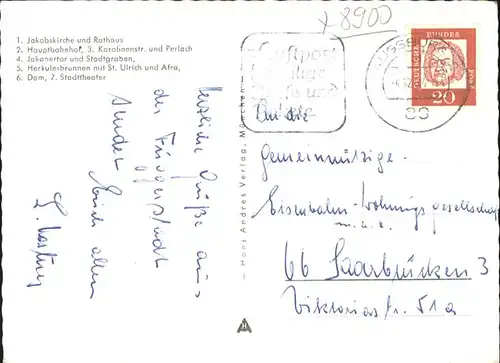 x 8900
1. Jakobskirche und Rathaus
2. Hauptbahnhof, 3. Karolinenstr. und Perlach
4. Jakobertor und Stadtgraben,
5. Herkulesbrunnen mit St. Ulrich und Afra,
6. Dom, 7. Stadttheater
Luftpost
AUGSBURG
DEUTSCHE BUNDESPOST
20
Herzliche Grüße aus
der Fuggerstadt
sendet Euch allen
— Hans Andres Verlag, München —
An die
Gemeinnützige
Eisenbahn-Wohnungsgesellschaft
m.b.H.
66 Saarbrücken 3
Viktoriastr. 51a